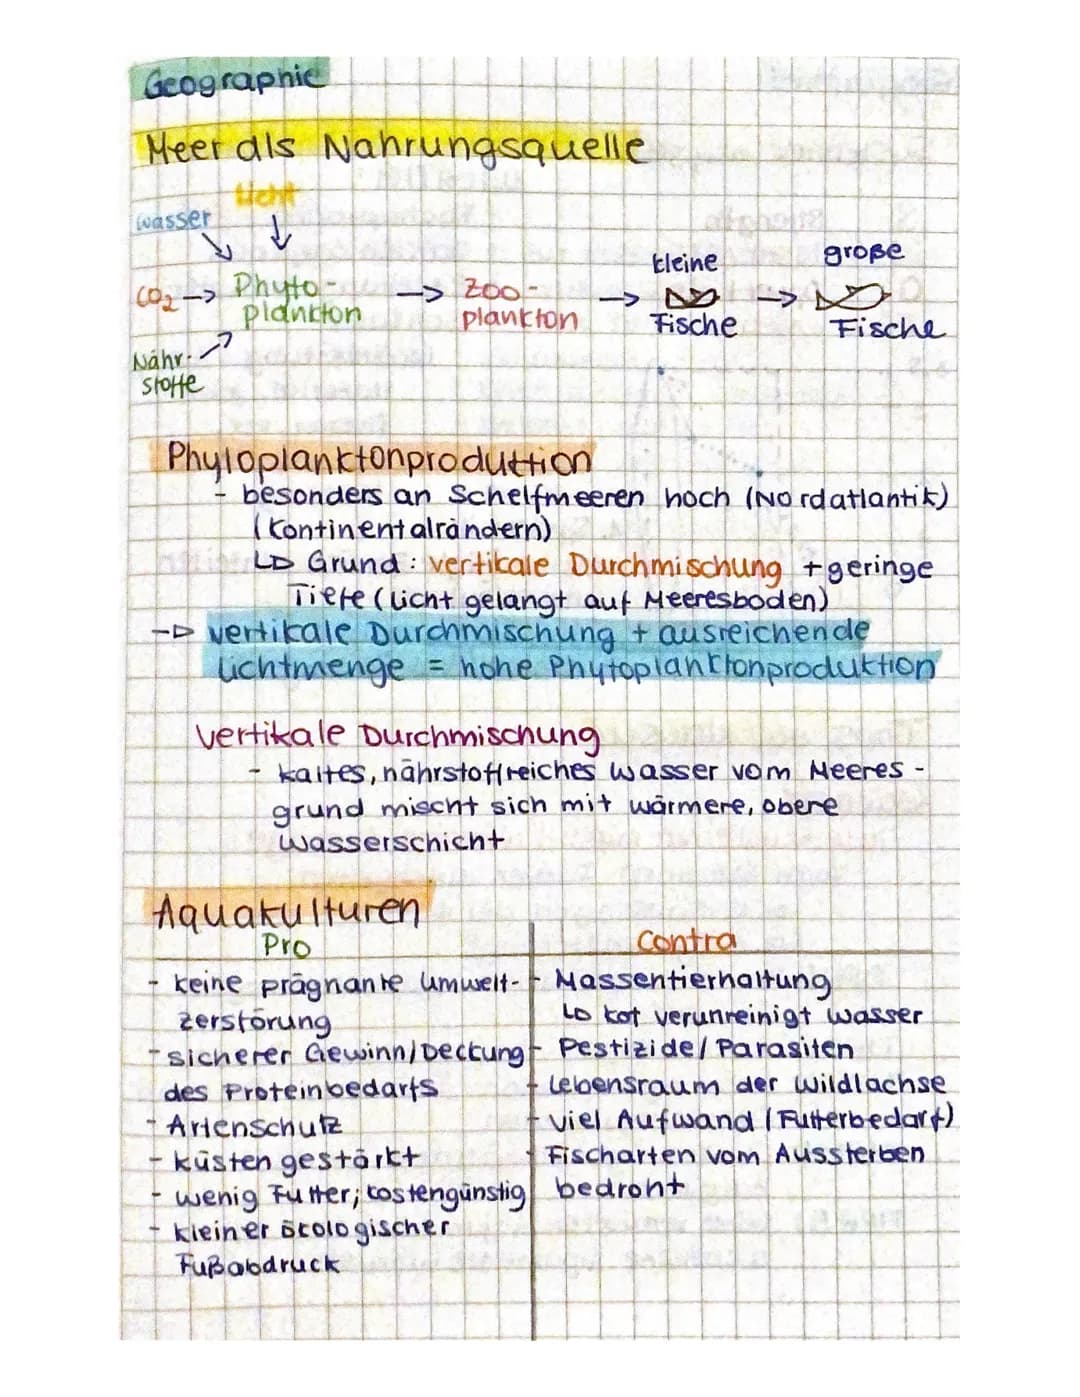 Geographie
Meer als Nahrungsquelle
Licht
Wasser
kleine
große
CO2 -> Phyto-
plankton
-> Zoo-
plankton
->
Fische
->
Fische
Nähr-
stoffe
Phyloplanktonproduktion
- besonders an Schelfmeeren hoch (Nordatlantik)
(Kontinentalrändern)
↳ Grund: vertikale Durchmischung + geringe
Tiefe (Licht gelangt auf Meeresboden)
-> vertikale Durchmischung + ausreichende
Lichtmenge = hohe Phytoplanktonproduktion
Vertikale Durchmischung
- kaltes, nährstoffreiches Wasser vom Meeres-
grund mischt sich mit wärmere, obere
Wasserschicht
Aquakulturen
Pro
- keine prägnante Umwelt-
zerstörung
- sicherer Gewinn/Deckung
des Proteinbedarfs
- Artenschutz
- Küsten gestärkt
- wenig Futter; kostengünstig
- kleiner ökologischer
Fußabdruck
Contra
- Massentierhaltung
↳ Kot verunreinigt Wasser
- Pestizide/Parasiten
- Lebensraum der Wildlachse
- viel Aufwand (Futterbedarf)
- Fischarten vom Aussterben
bedroht